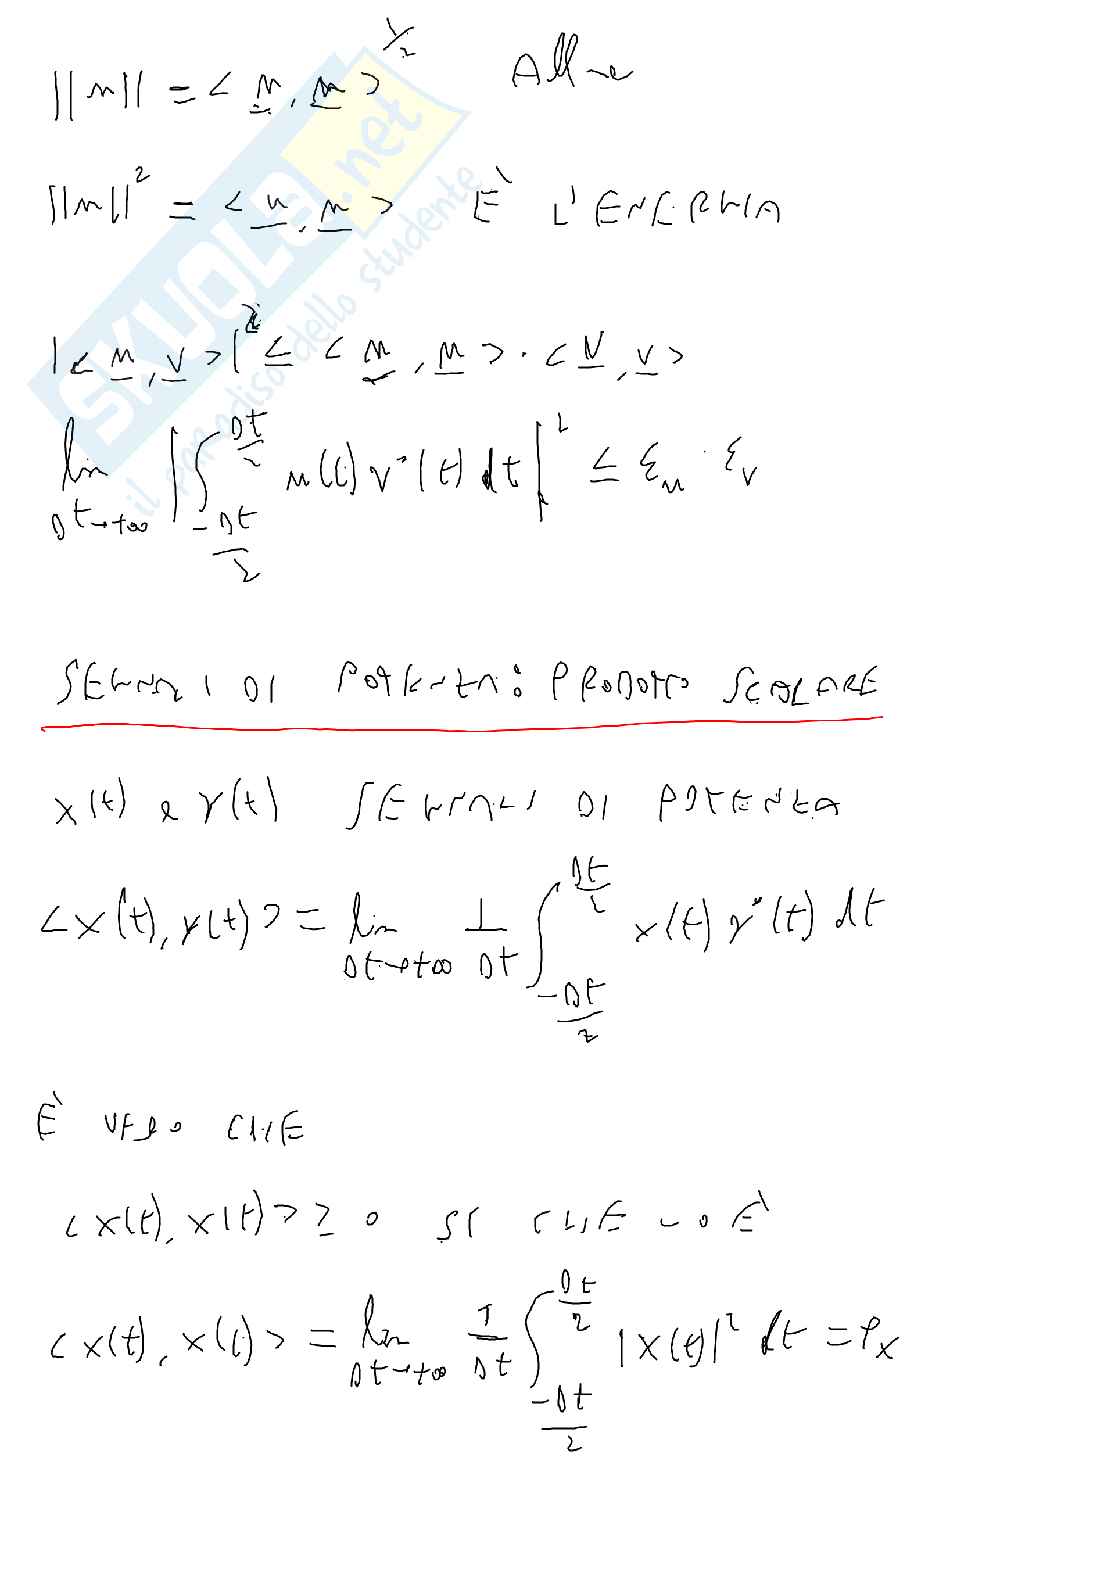 ||u|| = < u, u >^1/2 Allora
||u||² = < u, u > È L'ENERGIA
|< u, v >|² ≤ < u, u > · < v, v >
lim Δt→+∞ | ∫_{-Δt/2}^{Δt/2} u(t) v*(t) dt |² ≤ ε_u · ε_v
SEGNALI DI POTENZA: PRODOTTO SCALARE
x(t) e y(t) SEGNALI DI POTENZA
< x(t), y(t) > = lim Δt→+∞ 1/Δt ∫_{-Δt/2}^{Δt/2} x(t) y*(t) dt
È VERO CHE
< x(t), x(t) > ≥ 0 SÌ CHE LO È
< x(t), x(t) > = lim Δt→+∞ 1/Δt ∫_{-Δt/2}^{Δt/2} |x(t)|² dt = P_x
SKUOLA.net
il paradiso dello studente